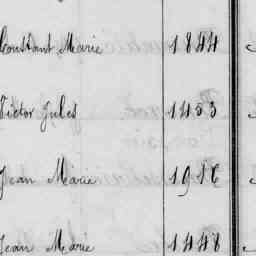 Constant Marie 1844
Victor Jules 1453
Jean Marie 1916
Jean Marie 1448